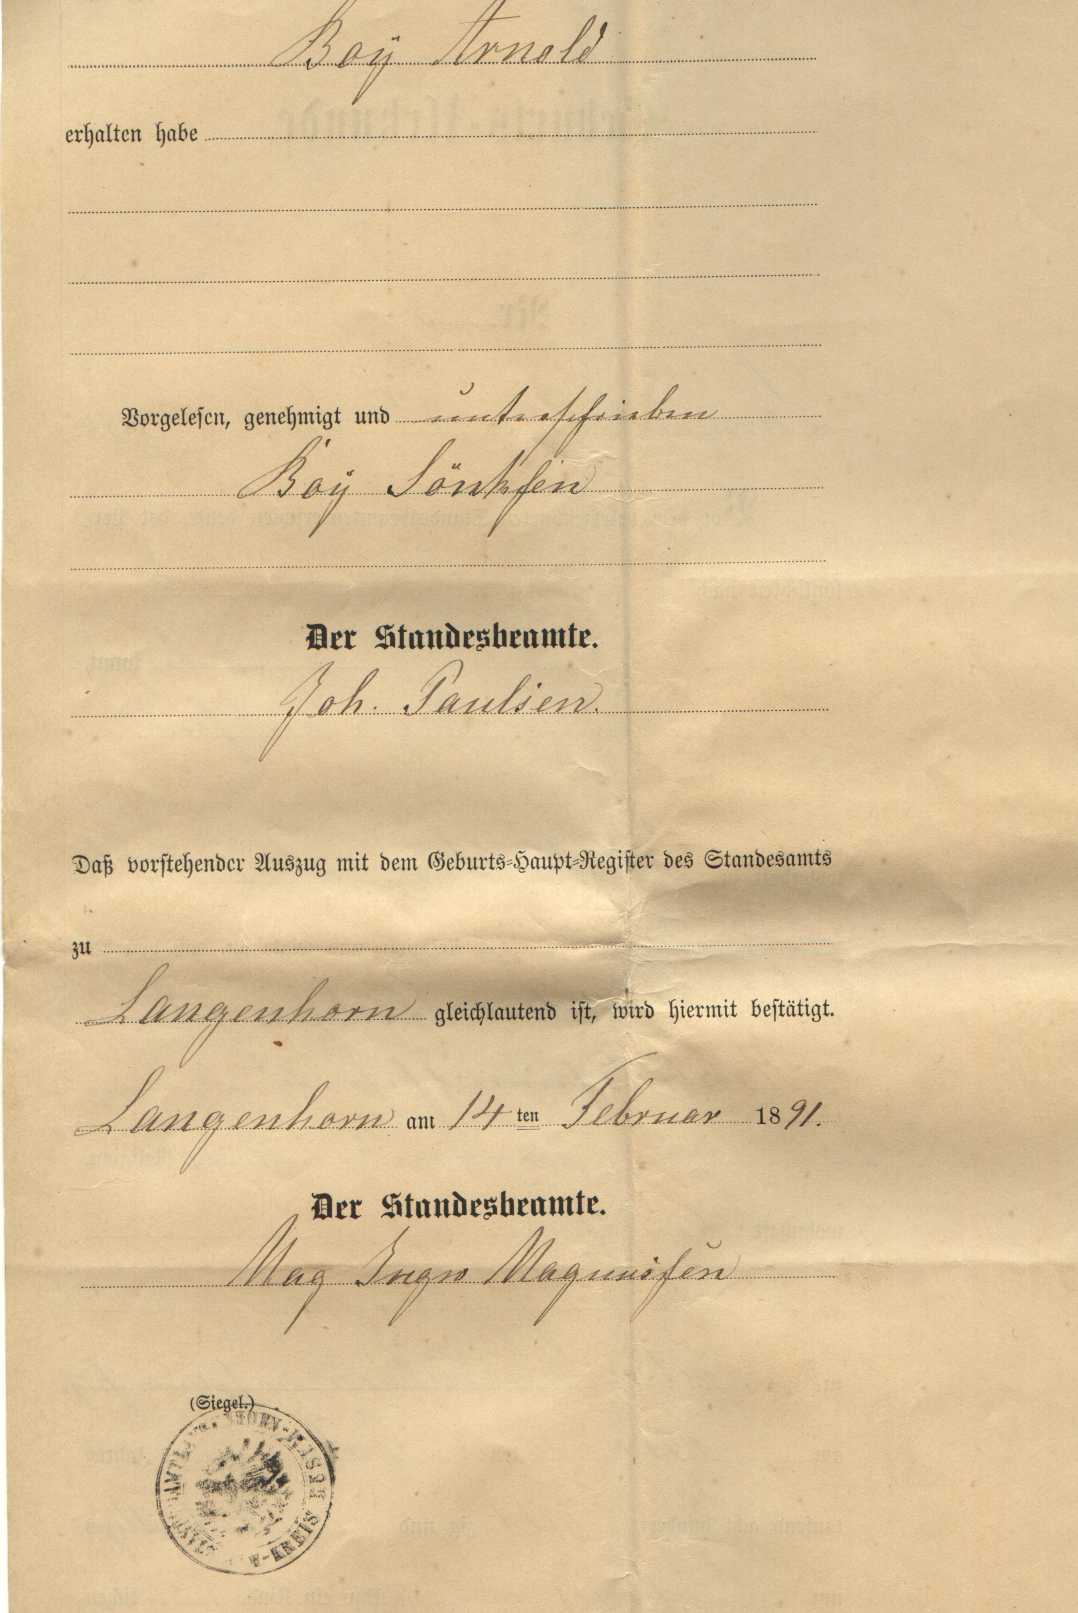 Boÿ Arnold
erhalten habe
Vorgelesen, genehmigt und unterschrieben
Boÿ Sönksen
Der Standesbeamte.
Joh. Paulsen.
Daß vorstehender Auszug mit dem Geburts-Haupt-Register des Standesamts
zu
Langenhorn gleichlautend ist, wird hiermit bestätigt.
Langenhorn am 14 ten Februar 1891.
Der Standesbeamte.
Mag Ingw Magnussen
(Siegel.)
KREIS